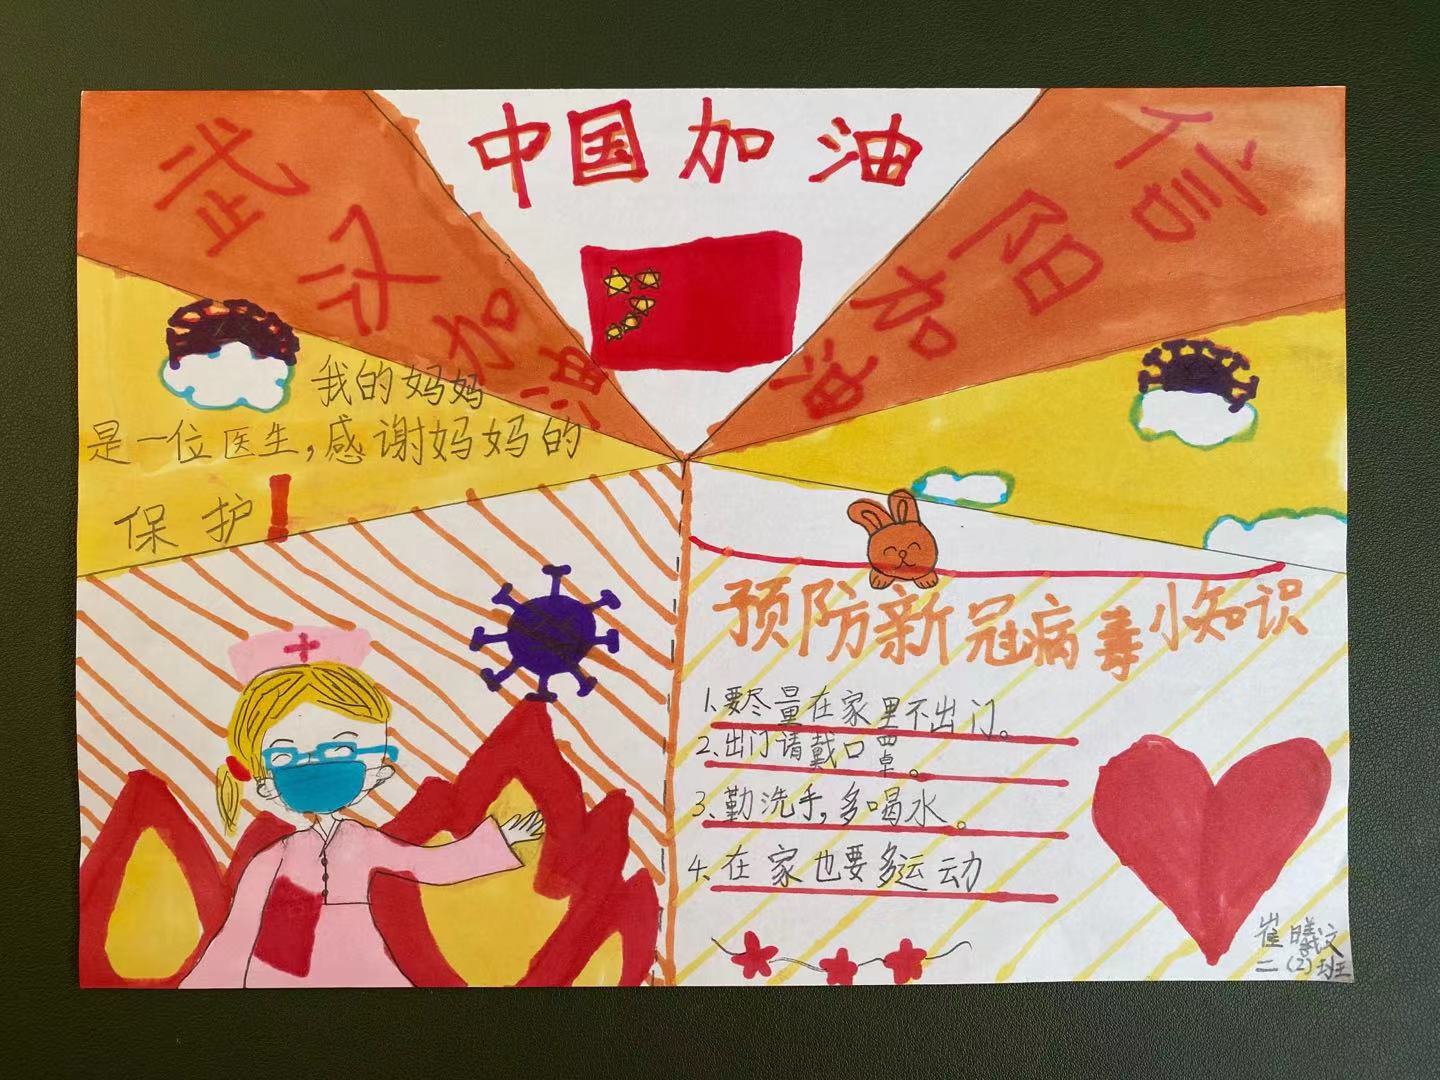 中国加油
武汉加油
信阳加油
我的妈妈
是一位医生，感谢妈妈的
保护！
预防新冠病毒小知识
1、要尽量在家里不出门。
2、出门请戴口罩。
3、勤洗手，多喝水。
4、在家也要多运动
崔曦文
二（2）班